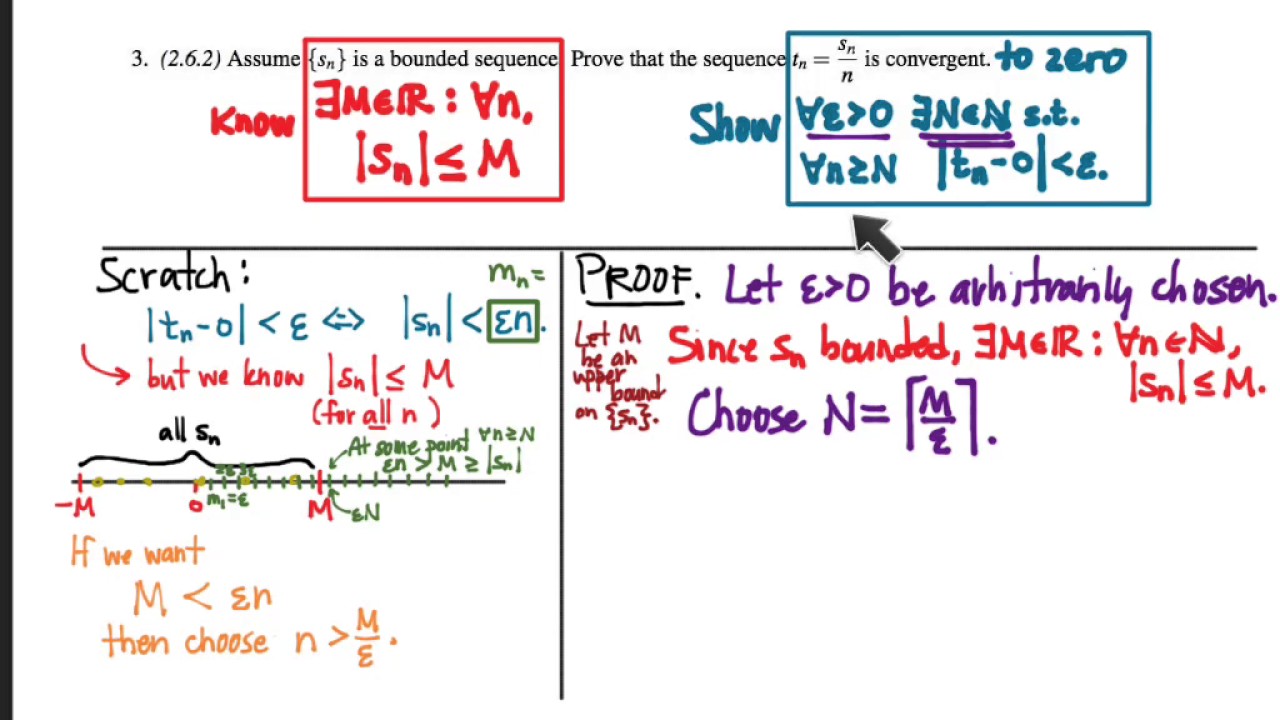 3. (2.6.2) Assume {sₙ} is a bounded sequence. Prove that the sequence tₙ = sₙ/n is convergent. to zero
Know
∃M∈ℝ : ∀n,
|sₙ| ≤ M
Show
∀ε>0 ∃N∈ℕ s.t.
∀n≥N |tₙ-0|<ε.
Scratch:
mₙ=
|tₙ-0| < ε ⇔ |sₙ| < εn.
but we know |sₙ| ≤ M
(for all n)
all sₙ
At some point ∀n≥N
εn > M ≥ |sₙ|
-M 0 m₁=ε M εN
If we want
M < εn
then choose n > M/ε.
PROOF. Let ε>0 be arbitrarily chosen.
Let M
be an
upper
bound
on {sₙ}.
Since sₙ bounded, ∃M∈ℝ : ∀n∈ℕ,
|sₙ| ≤ M.
Choose N = ⌈M/ε⌉.